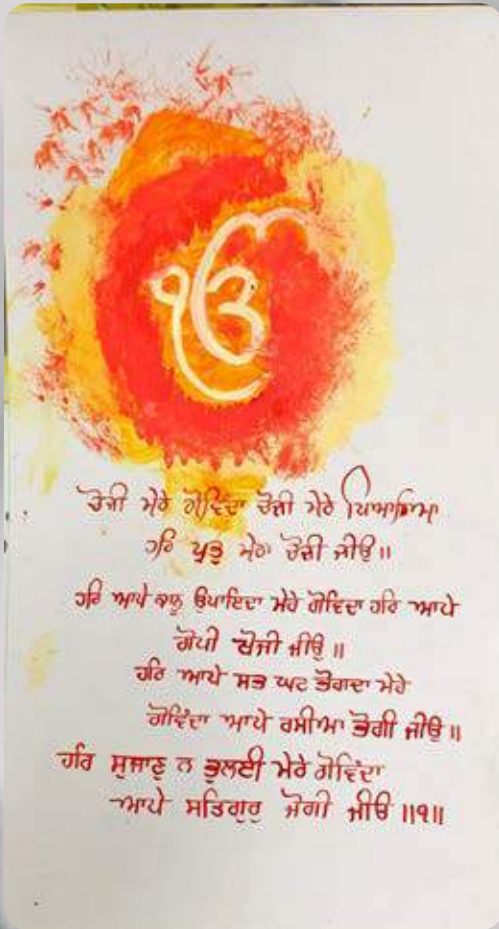 ੴ
ਚੋਜੀ ਮੇਰੇ ਗੋਵਿੰਦਾ ਚੋਜੀ ਮੇਰੇ ਪਿਆਰਿਆ
ਹਰਿ ਪ੍ਰਭੁ ਮੇਰਾ ਚੋਜੀ ਜੀਉ॥
ਹਰਿ ਆਪੇ ਕਾਨੁ ਉਪਾਇਦਾ ਮੇਰੇ ਗੋਵਿਦਾ ਹਰਿ ਆਪੇ
ਗੋਪੀ ਖੋਜੀ ਜੀਉ॥
ਹਰਿ ਆਪੇ ਸਭ ਘਟ ਭੋਗਦਾ ਮੇਰੇ
ਗੋਵਿੰਦਾ ਆਪੇ ਰਸੀਆ ਭੋਗੀ ਜੀਉ॥
ਹਰਿ ਸੁਜਾਣੁ ਨ ਭੁਲਈ ਮੇਰੇ ਗੋਵਿੰਦਾ
ਆਪੇ ਸਤਿਗੁਰੁ ਜੋਗੀ ਜੀਉ॥੧॥